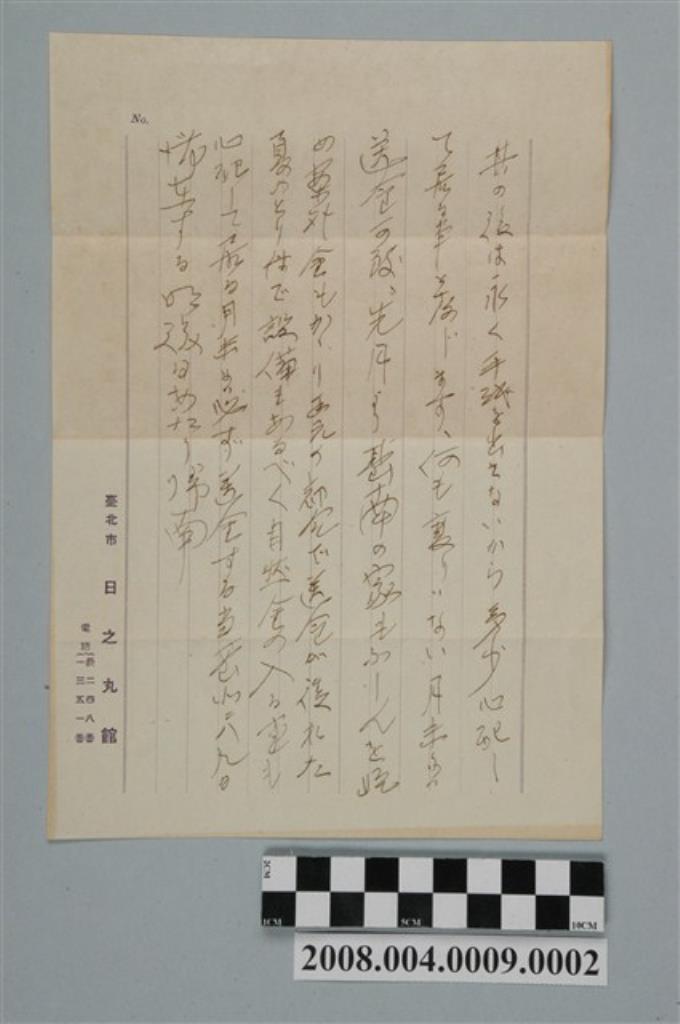 No.
其の後は永く手紙を出さないから多少心配し
て居る事と存じます、何も変りない月末
送金可致、先月より台南の家もふしんを
め案外金もかゝり の都合で送金が後れた
夏のとり 件で設備もあるべく自然金の入る
心配して居る月末は必ず送金する当 八九日
滞在する明後日あたり帰南
臺北市 日之丸館
電話 長二四八番
一三五一番
2CM
1CM
5CM
10CM
2008.004.0009.0002